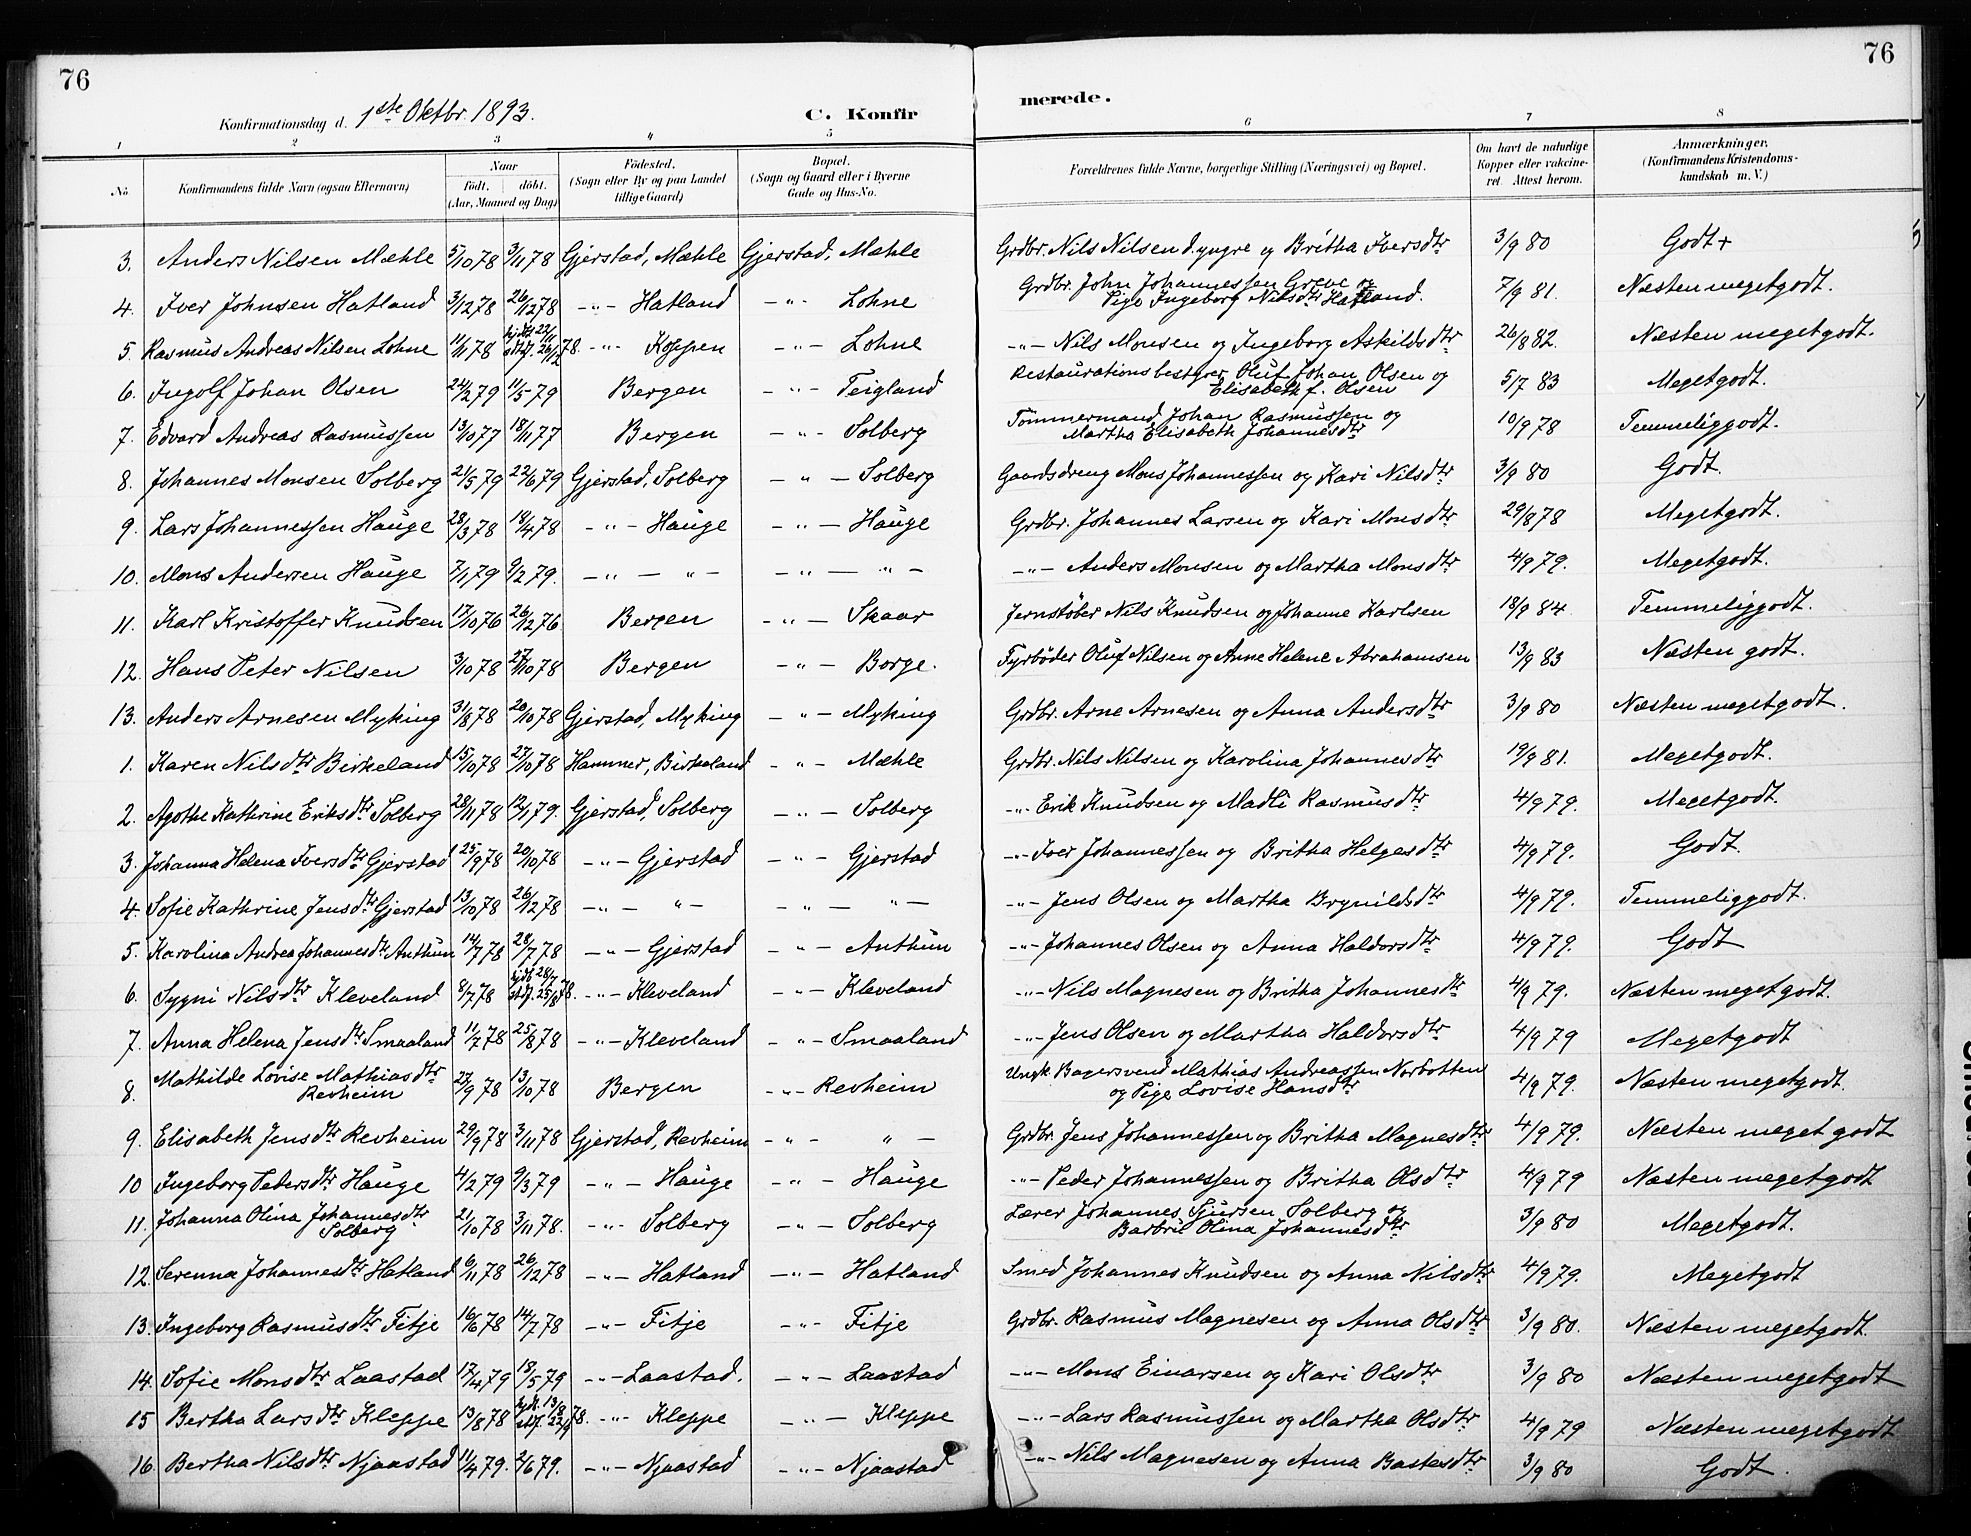 76
76
Konfirmationsdag d. 1ste Oktbr. 1893.
C. Konfir
merede.
1 2 3 4 5 6 7 8
No Konfirmandens fulde Navn (ogsaa Efternavn) Naar født. døbt. (Aar, Maaned og Dag) Fødested. (Sogn eller By og paa Landet tillige Gaard) Bopæl. (Sogn og Gaard eller i Byerne Gade og Hus-No. Forældrenes fulde Navne, borgerlige Stilling (Næringsvei) og Bopæl. Om havt de naturlige Kopper eller vakcineret. Attest herom. Anmærkninger. (Konfirmandens Kristendomskundskab m. V.)
3. Anders Nilsen Mæhle 5/10 78 3/11 78 Gjerstad, Mæhle Gjerstad, Mæhle Grdbr. Nils Nilsen d. yngre og Britha Iversdtr 3/9 80 Godt+
4. Iver Johnsen Hatland 3/12 78 26/12 78 -"- Hatland -"- Lohne Grdbr. John Johannessen Greve og Pige Ingeborg Nilsdtr Hatland. 7/9 81. Næsten megetgodt.
5. Rasmus Andreas Nilsen Lohne 11/11 78 hjdbt 22/11 stdf. 26/12 78. -"- Koppen -"- Lohne -"- Nils Monsen og Ingeborg Askildsdtr 26/8 82. Næsten megetgodt.
6. Ingolf Johan Olsen 24/2 79 11/5 79 Bergen -"- Teigland Restaurationsbestyrer Oluf Johan Olsen og Elisabeth f. Olsen 5/7 83 Megetgodt.
7. Edvard Andreas Rasmussen 13/10 77 18/11 77 Bergen -"- Solberg Tømmermand Johan Rasmussen og Martha Elisabeth Johannesdtr 10/9 78 Temmeliggodt.
8. Johannes Monsen Solberg 21/5 79 22/6 79 Gjerstad, Solberg -"- Solberg Gaardsdreng Mons Johannessen og Kari Nilsdtr 3/9 80 Godt.
9. Lars Johannessen Hauge 28/3 78 18/4 78 -"- Hauge -"- Hauge Grdbr. Johannes Larsen og Kari Monsdtr 29/8 78 Megetgodt.
10. Mons Andersen Hauge 7/1 79 9/2 79. -"- "- -"- "- -"- Anders Monsen og Martha Monsdtr 4/9 79. Megetgodt.
11. Karl Kristoffer Knudsen 17/10 76 26/12 76 Bergen -"- Skaar Jernstøber Nils Knudsen og Johanne Karlsen 18/9 84. Temmeliggodt.
12. Hans Peter Nilsen 3/10 78 27/10 78 Bergen -"- Borge. Fyrbøder Oluf Nilsen og Anne Helene Abrahamsen 13/9 83 Næsten godt.
13. Anders Arnesen Myking 31/8 78 20/10 78 Gjerstad, Myking -"- Myking Grdbr. Arne Arnesen og Anna Andersdtr 3/9 80 Næsten megetgodt.
1. Karen Nilsdtr Birkeland 15/10 78 27/10 78 Hammer, Birkeland -"- Mæhle Grdbr. Nils Nilsen og Karolina Johannesdtr 19/9 81. Megetgodt.
2. Agothe Kathrine Eriksdtr Solberg 28/11 78 12/1 79. Gjerstad, Solberg -"- Solberg -"- Erik Knudsen og Madli Rasmusdtr 4/9 79. Megetgodt.
3. Johanna Helena Iversdtr Gjerstad 25/9 78 20/10 78 -"- Gjerstad -"- Gjerstad -"- Iver Johannessen og Britha Helgesdtr 4/9 79. Godt.
4. Sofie Kathrine Jensdtr Gjerstad 13/10 78 26/12 78 -"- "- -"- "- -"- Jens Olsen og Martha Brynildsdtr 4/9 79. Temmeliggodt.
5. Karolina Andrea Johannesdtr Anthun 14/7 78 28/7 78 -"- Gjerstad -"- Anthun -"- Johannes Olsen og Anna Haldorsdtr 4/9 79. Godt
6. Sygni Nilsdtr Kleveland 8/7 78 hjdbt 28/7 stdf. 25/8 78. -"- Kleveland -"- Kleveland -"- Nils Magnesen og Britha Johannesdtr 4/9 79. Næsten megetgodt.
7. Anna Helena Jensdtr Smaaland 11/7 78 25/8 78 -"- Kleveland -"- Smaaland -"- Jens Olsen og Martha Haldorsdtr 4/9 79 Megetgodt
8. Mathilde Lovise Mathiasdtr Revheim 27/9 78 13/10 78 Bergen -"- Revheim Ungk. Bagersvend Mathias Andreassen Norbotten og Pige Lovise Hansdtr 4/9 79. Næsten megetgodt.
9. Elisabeth Jensdtr Revheim 29/9 78 3/11 78 Gjerstad, Revheim -"- "- Grdbr. Jens Johannessen og Britha Magnesdtr 4/9 79. Næsten meget godt
10 Ingeborg Pedersdtr Hauge 4/2 79 9/3 79 -"- Hauge -"- Hauge -"- Peder Johannessen og Britha Olsdtr 4/9 79 Næsten megetgodt
11. Johanna Olina Johannesdtr Solberg 21/10 78 3/11 78. -"- Solberg -"- Solberg Lærer Johannes Sjursen Solberg og Barbril Olina Johannesdtr 3/9 80 Megetgodt.
12. Serenna Johannesdtr Hatland 6/11 78 26/12 78 -"- Hatland -"- Hatland Smed Johannes Knudsen og Anna Nilsdtr 4/9 79. Megetgodt
13. Ingeborg Rasmusdtr Fitje 16/6 78 14/7 78 -"- Fitje -"- Fitje Grdbr. Rasmus Magnesen og Anna Olsdtr 3/9 80. Næsten megetgodt.
14. Sofie Monsdtr Laastad 17/4 79 18/5 79 -"- Laastad. -"- Laastad -"- Mons Einarsen og Kari Olsdtr 3/9 80 Næsten megetgodt
15 Bertha Larsdtr Kleppe 13/8 78 hjdt. 13/8 stdf. 22/9 78. -"- Kleppe -"- Kleppe -"- Lars Rasmussen og Martha Olsdtr 4/9 79 Næsten megetgodt
16 Bertha Nilsdtr Njaastad 11/4 79. 2/6 79. -"- Njaastad -"- Njaastad -"- Nils Magnesen og Anna Bastesdtr 3/9 80 Godt.